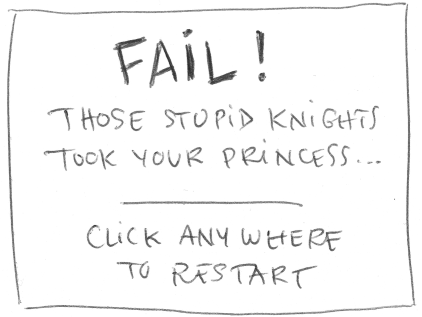 FAiL!
THOSE STUPiD KNiGHTS
TOOK YOUR PRiNCESS...
CLiCK ANYWHERE
TO RESTART